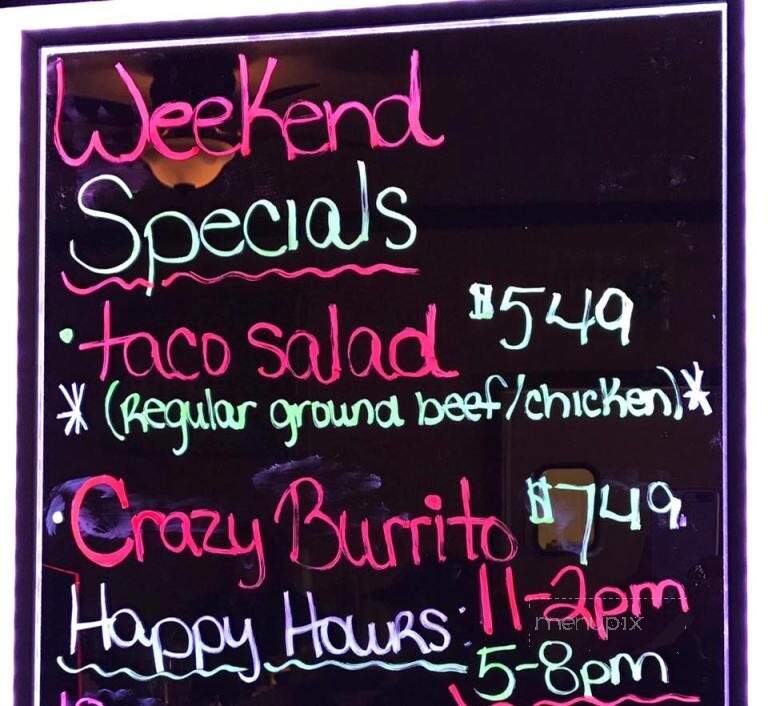 Weekend
Specials
• taco salad $549
* (Regular ground beef/chicken) *
• Crazy Burrito $749
Happy Hours: 11-2pm
5-8pm
menupix